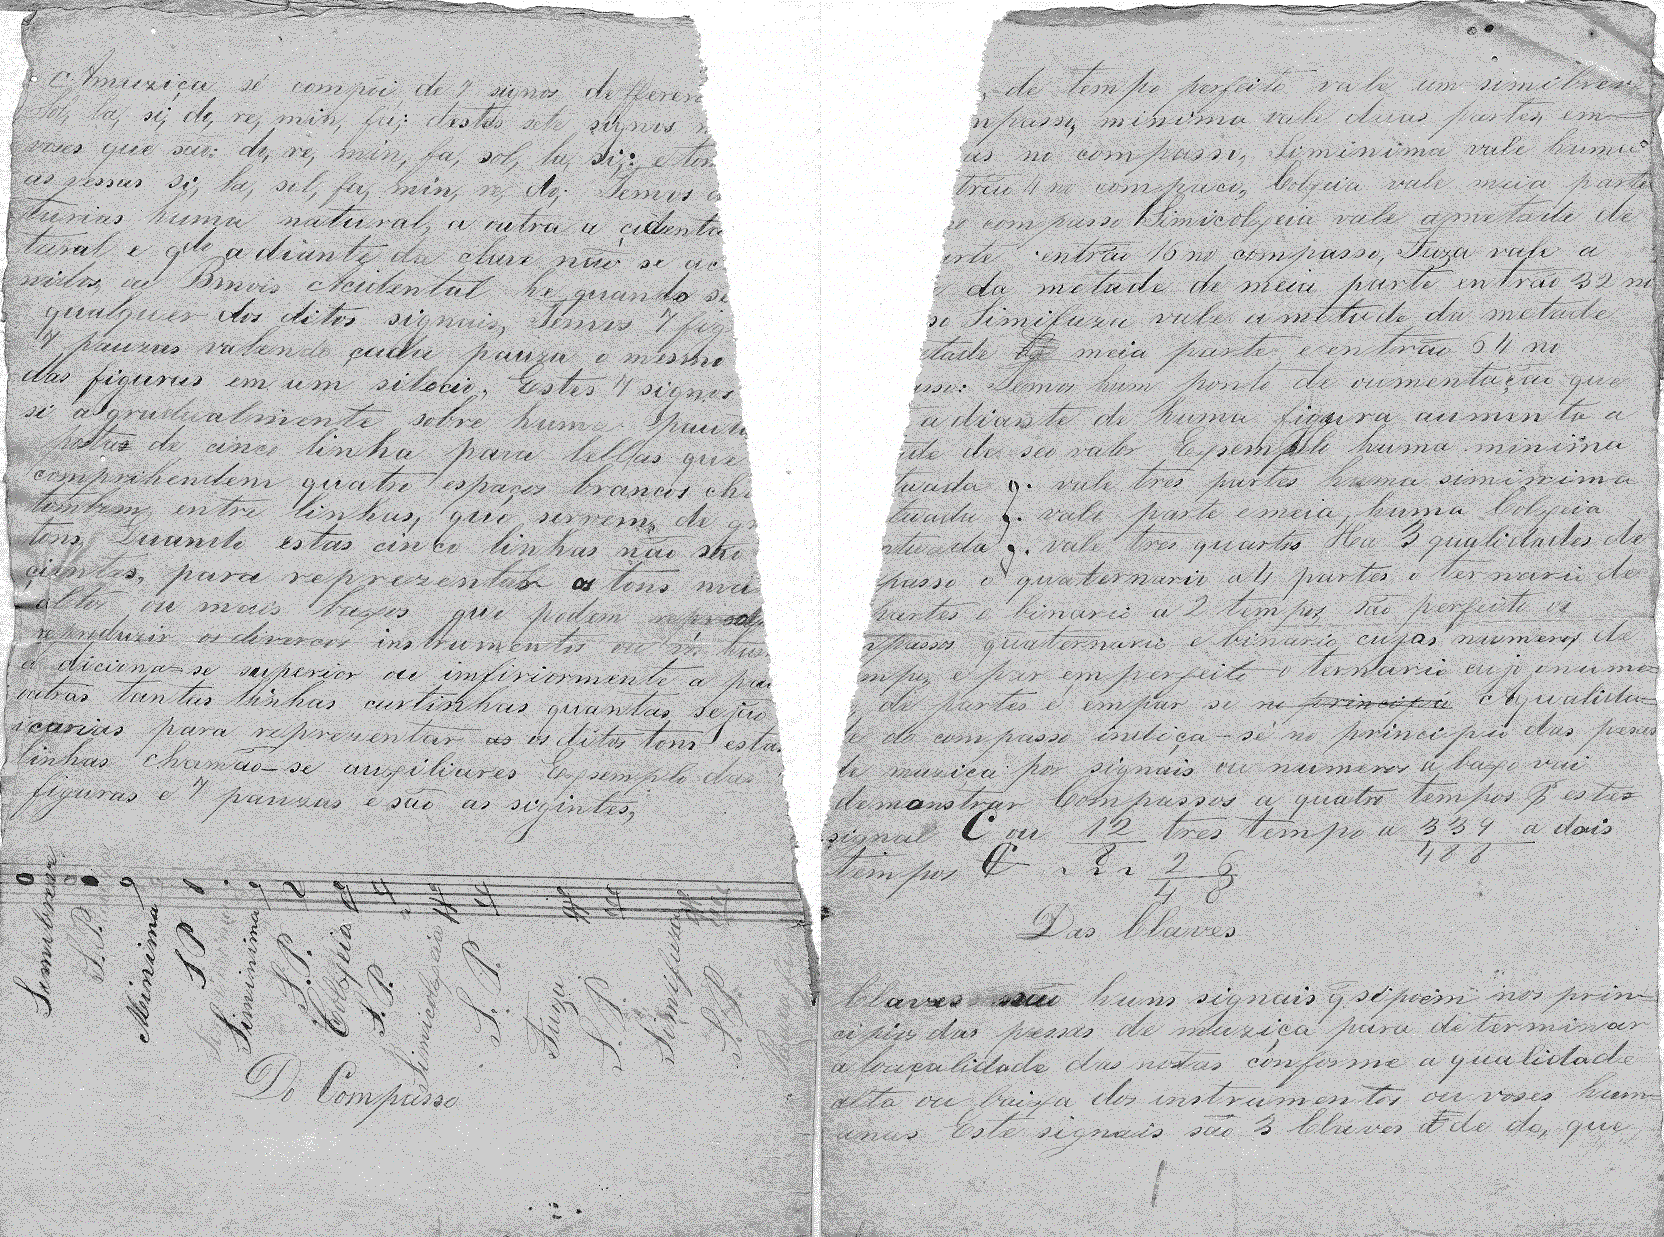 A muziça sé compõi de 7 signos defferen
Sol, la, si, do, re, min, fá; destes sete signos n
voses que são: do, re, min, fa, sol, la, si,: e ton
as pessas si, la, sol, fa, min, re, do; Temos
turias huma natural, a outra a cidenta
tural e qdo a diante da clave não se ac
nidos, ou Bmois Acidental he quando se
qualquer dos ditos signais, Temos 7 fig
7 pauzas valendo cada pauza o mesmo
das figuras em um silecio, Estes 7 signos
si a gradualmente sobre huma Spauta
postas de cinco linha para bellas que
comprihendem quatro espaços brancos cha
tombem entre linhas, que servem, de
tons Quando estas cinco linhas não são
cientes, para reprezentar os tons mai
altos ou mais baxos que podem
reproduzir os divercos instrumentos ou
a diciona-se superior ou infiriormente a pau
outras tantas linhas curtinhas quantas sejão
icarias para reprezentar as os ditos tons estas
linhas chamão-se auxiliares Exsemplo das
figuras e 7 pauzas e são as segintes;
Semibreve
S.P.
Minima
S P
Siminima
S.P.
Colxeia
S.P.
Simicolxeia
S. P.
Fuza
S. P.
Simifuza
S. P.
Do Compasso
de tempo perfeito vale um simibreve
npasso, minima vale duas partes, em-
as no compasso, Siminima vale huma
trão 4 no compaco, Colxeia vale meia parte
o compasso Simicolxeia vale ametade de
arte entrão 16 no compasso, Fuza vale a
da metade de meia parte entrão 32 no
so Simifuza vale a metade da metade
etade de meia parte e entrão 64 no
asso: Temos hum ponto de aumentação que
a diante de huma figura aumenta a
ade de seo valor Exsemplo huma minima
tuada vale tres partes huma siminima
tuada vale parte e meia, huma Colxeia
ntuada vale tres quartos Ha 3 qualidades de
passo o quaternario a 4 partes o ternario de
partes e binario a 2 tempos, são perfeito os
mpassos quaternario e binario, cujos numeros de
mpos, e par emperfeito o ternario cujo numero
de partes e empar se no principio A qualida-
de do compasso indiça-sé no principio das pesas
de muziça por signais ou numeros a baxo vai
demonstrar Compassos a quatro tempos P estes
signal C ou 12/8 tres tempo a 3 3 9/4 8 8 a dois
tempos ₵ . 2. 2/4 6/8
Das Claves
Claves são huns signais q̃ si poem nos prin-
cipios das pessas de muziça para determinar
a loucalidade das notas conforme a qualidade
alta ou baixa dos instrumentos ou voses hum-
anas Este signais são 3 Claves de do, que